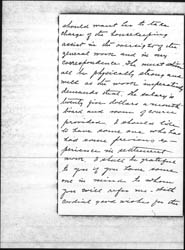 should want her to take
charge of the housekeeping
assist in the oversight of the
general work and in my
correspondence. She must
all be physically strong and
well as the work imperatively
demands that. The salary is
twenty five dollars a month
board and room of course
provided. I should like
to have some one who has
had some previous ex-
perience in settlement
work. I shall be grateful
to you if you have some
one in mind to whom
you will refer me. With
cordial good wishes for the